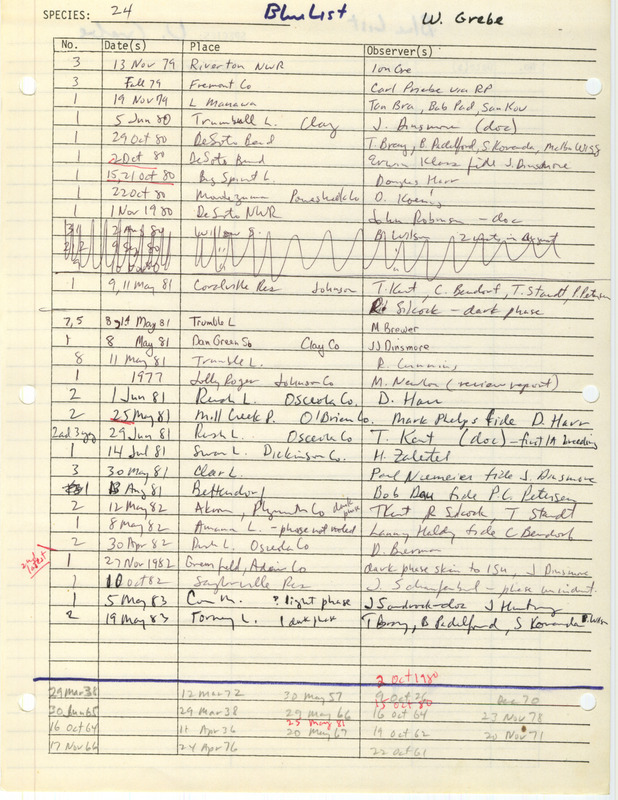 SPECIES: 24 Blue List W. Grebe
No. Date(s) Place Observer(s)
3 13 Nov 79 Riverton NWR Ion Cre
3 Fall 79 Fremont Co Carl Priebe via RP
1 19 Nov 79 L Manawa Tan Bra, Bob Pad, San Kov
1 5 Jun 80 Trumbull L. Clay J. Dinsmore (doc)
1 29 Oct 80 DeSoto Bend T. Bray, B. Padelford, S Kovanda, Melba Wigg
1 2 Oct 80 DeSoto Bend Erwin Klaas fide J. Dinsmore
1 15,21 Oct 80 Big Spirit L. Douglas Harr
1 22 Oct 80 Montezuma Poweshiek Co O. Koenig
1 1 Nov 1980 DeSoto NWR John Robinson - doc
Willow S. B Wilson
1 9, 11 May 81 Coralville Res Johnson T. Kent, C. Bendorf, T. Staudt, P. Petersen
R Silcock - dark phase
7,5 8, May 81 Trumble L M Brewer
1 8 May 81 Dan Green So Clay Co JJ Dinsmore
8 11 May 81 Trumble L. R. Cummins
1 1977 Jolly Roger Johnson Co M. Newlon (review report)
2 1 Jun 81 Rush L. Osceola Co. D. Harr
2 25 May 81 Mill Creek P. O'Brian Co. Mark Phelps fide D. Harr
2ad 3yg 29 Jun 81 Rush L. Osceola Co. T. Kent (doc) - first IA breeding
1 14 Jul 81 Swan L. Dickinson Co. H. Zaletel
3 30 May 81 Clear L. Paul Niemeier fide J. Dinsmore
1 Aug 81 Bettendorf Bob fide P.C. Petersen
2 12 May 82 Akron, Plymouth Co dark phase T Kent R Silcock T Staudt
1 8 May 82 Amana L. - phase not noted Lanny Haldy fide C Bendorf
2 30 Apr 82 Rush L. Osceola Co D. Bierman
2nd latest 1 27 Nov 1982 Greenfield, Adair Co dark phase skin to ISU J Dinsmore
1 10 Oct 82 Saylorville Res J. - phase unident.
1 5 May 83 Cone M. ? light phase J Sandrock-doc J Huntington
2 19 May 83 Forney L. 1 dark phase T Bray, B Padelford, S Kovanda B. Wilson
2 Oct 1980
29 Mar 38 12 Mar 72 30 May 57 9 Oct 26 Dec 70
15 Oct 80
30 Jun 65 29 Mar 38 29 May 66 16 Oct 64 23 Nov 78
25 May 81
16 Oct 64 11 Apr 36 20 May 67 19 Oct 62 20 Nov 71
17 Nov 66 24 Apr 76 22 Oct 61